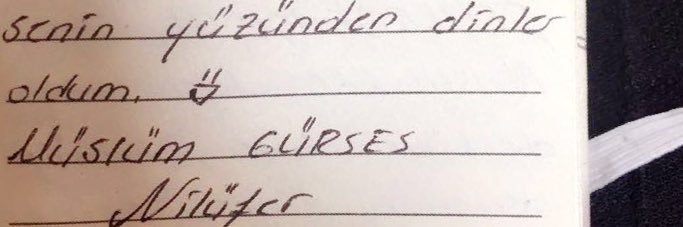 senin yüzünden dinler
oldum. Ü
Müslüm GÜRSES
Nilüfer